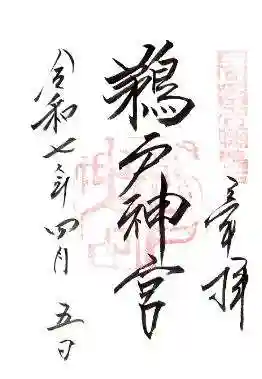 奉拝
鵜戸神宮
令和七年四月五日